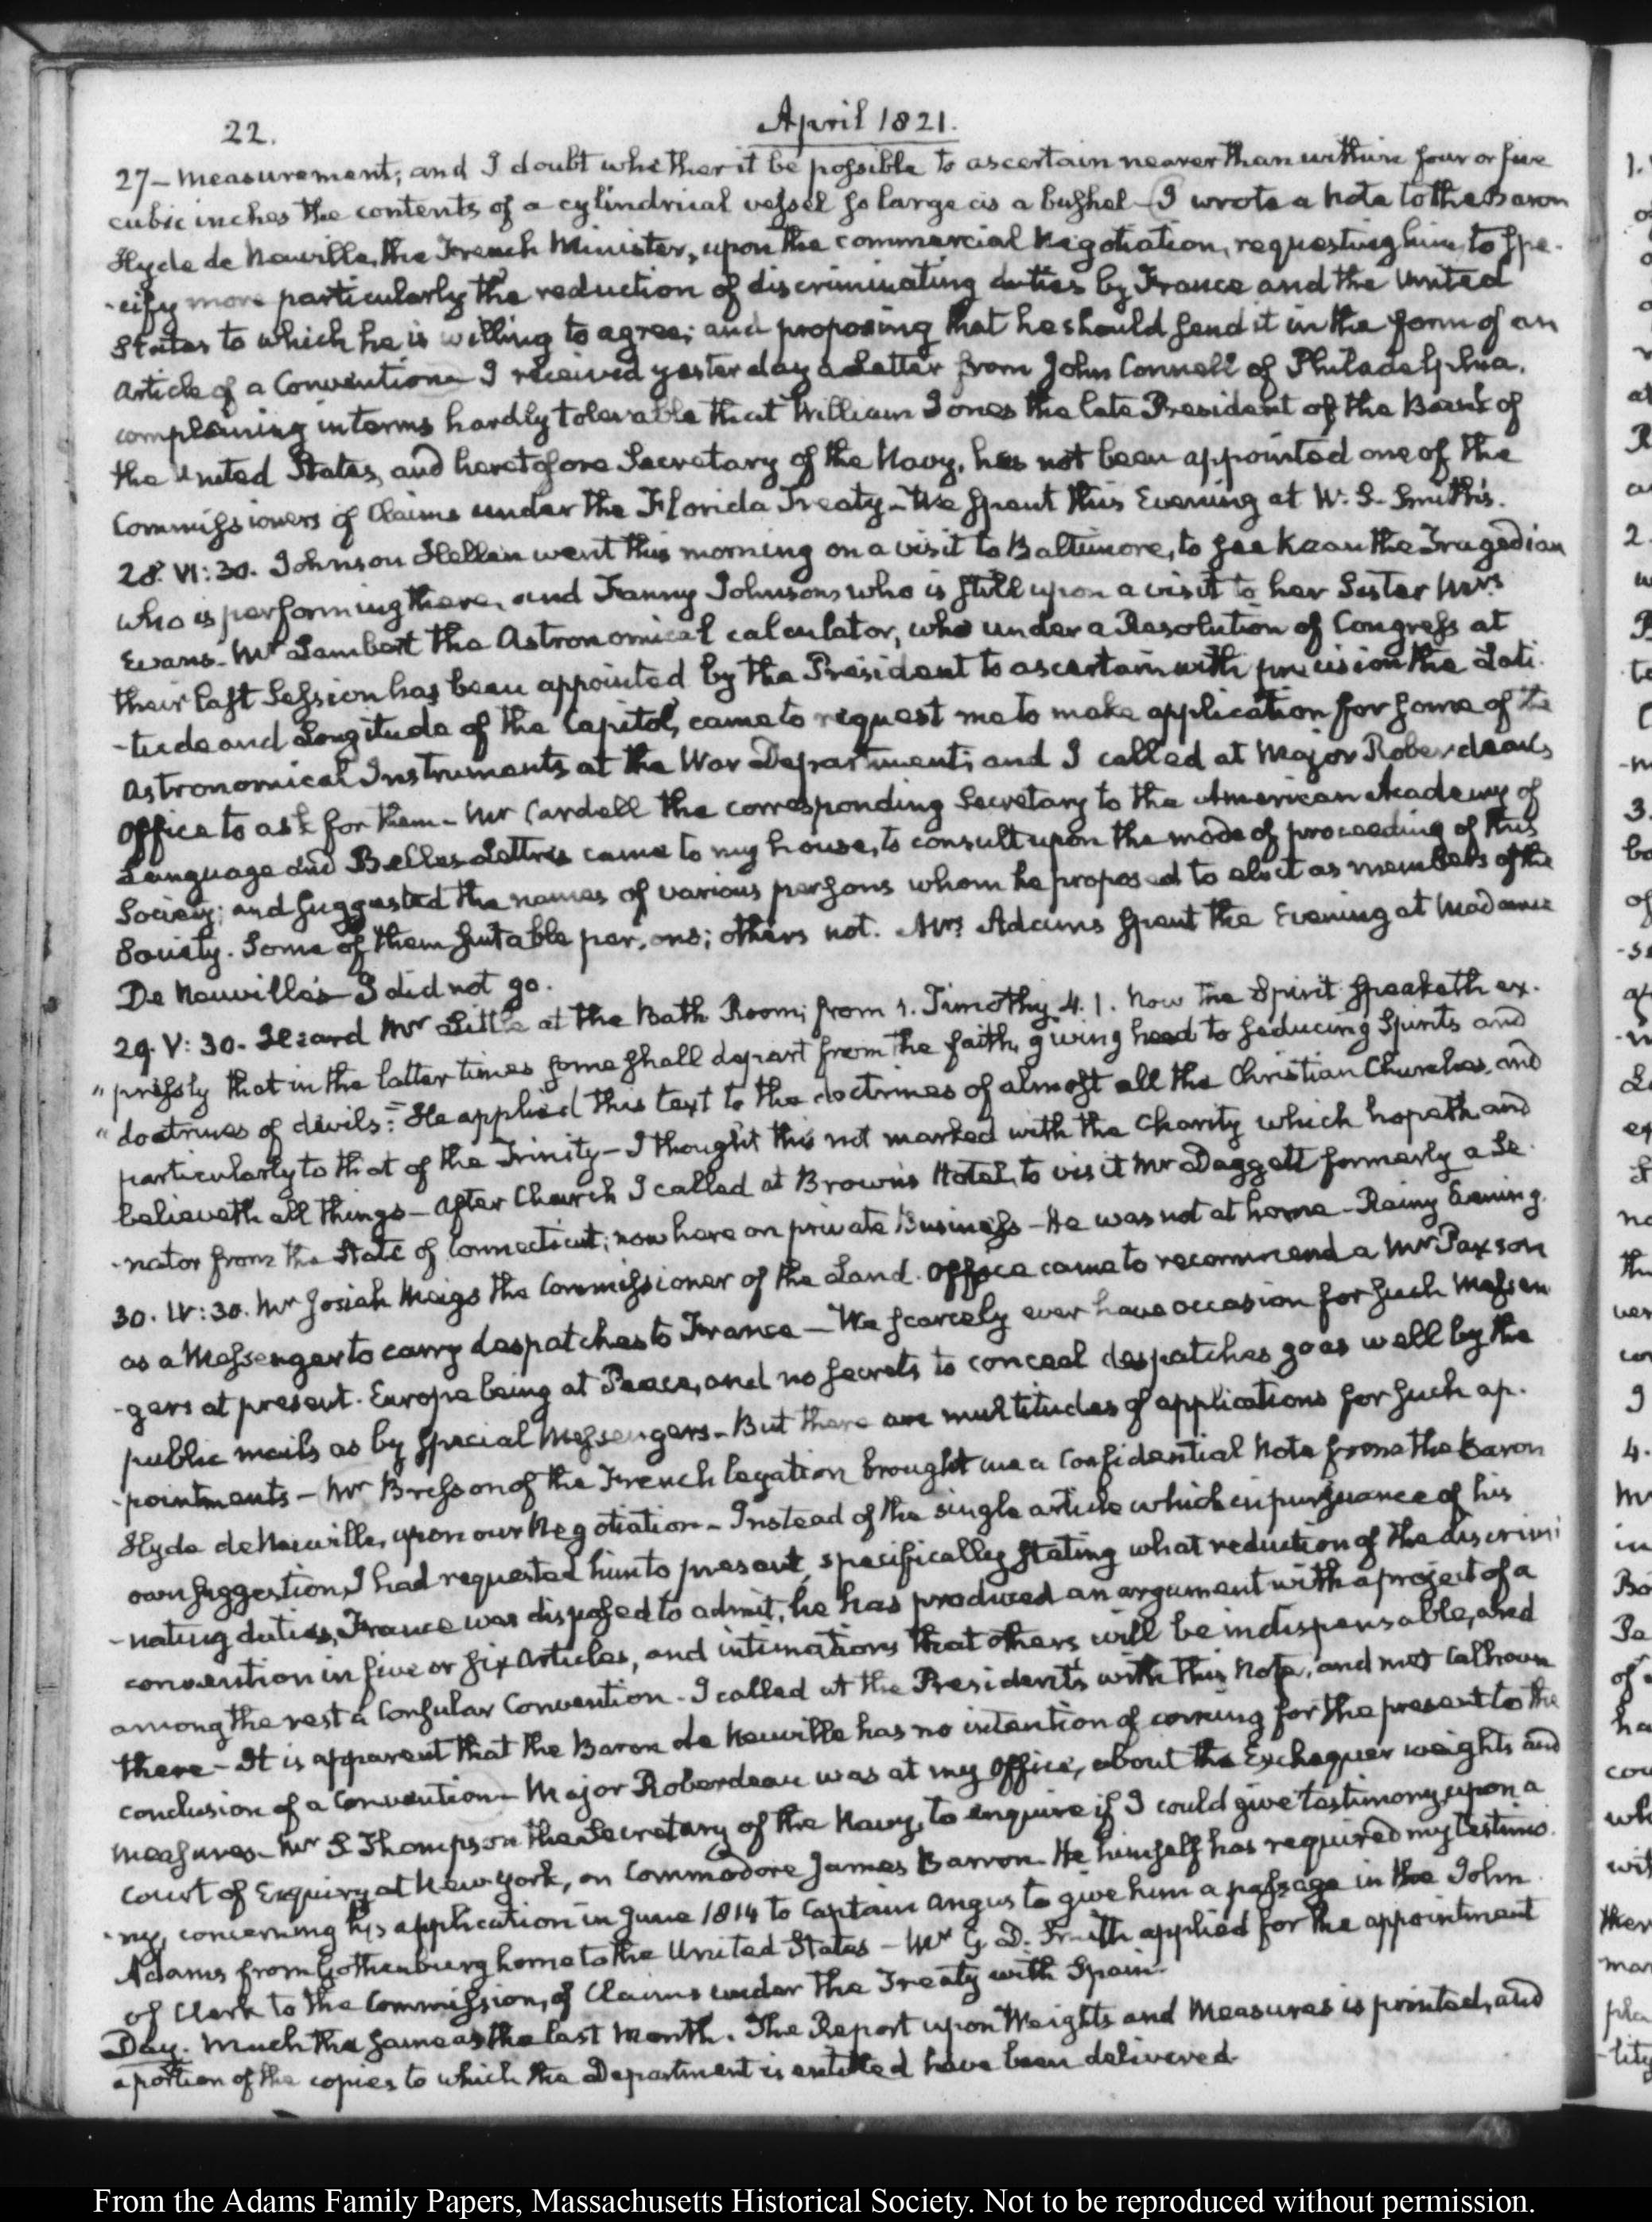 22.
April 1821.
27 - measurement; and I doubt whether it be possible to ascertain nearer than within four or five
cubic inches the contents of a cylindrical vessel so large as a bushel - I wrote a note to the Baron
Hyde de Neuville, the French Minister, upon the commercial Negotiation, requesting him to spe-
-cify more particularly the reduction of discriminating duties by France and the United
States to which he is willing to agree; and proposing that he should send it in the form of an
Article of a Convention - I received yesterday a Letter from John Connell of Philadelphia,
complaining in terms hardly tolerable that William Jones the late President of the Bank of
the United States, and heretofore Secretary of the Navy, has not been appointed one of the
Commissioners of Claims under the Florida Treaty - We spent this Evening at W. S. Smith's.
28. VI:30. Johnson Hellen went this morning on a visit to Baltimore, to see Kean the Tragedian
who is performing there, and Fanny Johnson, who is still upon a visit to her Sister Mrs
Evans - Mr Lambert the Astronomical calculator, who under a Resolution of Congress at
their last Session has been appointed by the President to ascertain with precision the Lati-
-tude and Longitude of the Capitol, came to request me to make application for some of the
Astronomical Instruments at the War Department; and I called at Major Roberdeau's
Office to ask for them - Mr Cardell the corresponding Secretary to the American Academy of
Language and Belles Lettres came to my house, to consult upon the mode of proceeding of this
Society; and suggested the names of various persons whom he proposed to elect as members of the
Society. Some of them suitable persons; others not. Mrs Adams spent the Evening at Madame
De Neuville's - I did not go.
29. V:30. Heard Mr Little at the Bath Room; from 1. Timothy 4. 1. Now the Spirit speaketh ex-
"pressly that in the latter times some shall depart from the faith, giving heed to seducing Spirits and
"doctrines of devils:" He applied this text to the doctrines of almost all the Christian Churches, and
particularly to that of the Trinity - I thought this not marked with the Charity which hopeth and
believeth all things - After Church I called at Brown's Hotel, to visit Mr Daggett formerly a Se-
-nator from the State of Connecticut; now here on private Business - He was not at home - Rainy Evening.
30. IV:30. Mr Josiah Meigs the Commissioner of the Land Office came to recommend a Mr Paxson
as a Messenger to carry despatches to France - We scarcely ever have occasion for such Messen
-gers at present. Europe being at Peace, and no secrets to conceal despatches go as well by the
public mails as by special Messengers - But there are multitudes of applications for such ap-
-pointments - Mr Bresson of the French legation brought me a Confidential Note from the Baron
Hyde de Neuville, upon our Negotiation - Instead of the single article which in pursuance of his
own suggestion, I had requested him to present, specifically stating what reduction of the discrimi
-nating duties, France was disposed to admit, he has produced an argument with a project of a
convention in five or six Articles, and intimations that others will be indispensable, and
among the rest a Consular Convention - I called at the President's with this Note, and met Calhoun
there - It is apparent that the Baron de Neuville has no intention of coming for the present to the
conclusion of a Convention - Major Roberdeau was at my Office, about the Exchequer weights and
measures - Mr S Thompson the Secretary of the Navy, to enquire if I could give testimony upon a
Court of Enquiry at New-York, on Commodore James Barron - He himself has required my testimo-
-ny, concerning his application in June 1814 to Captain Angus to give him a passage in the John
Adams from Gothenburg home to the United States - Mr G. D. Smith applied for the appointment
of Clerk to the Commission, of Claims under the Treaty with Spain.
Day. Much the same as the last Month. The Report upon Weights and Measures is printed, and
a portion of the copies to which the Department is entitled have been delivered.
From the Adams Family Papers, Massachusetts Historical Society. Not to be reproduced without permission.